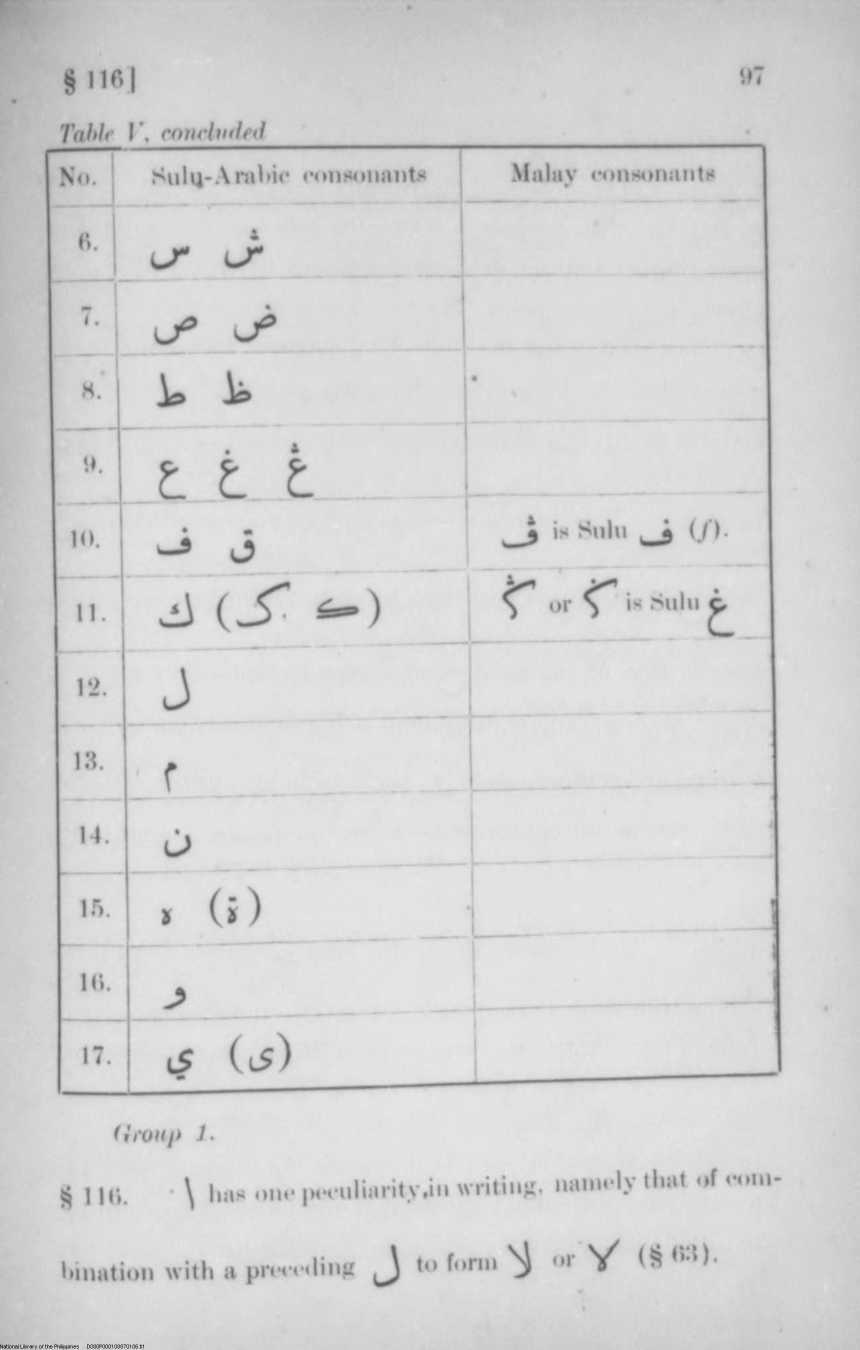 § 116] 97
Table V, concluded
No. Sulu-Arabic consonants Malay consonants
6. س ش
7. ص ض
8. ط ظ
9. ع غ ڠ
10. ف ق ڤ is Sulu ف (f).
11. ك (ک ڪ) or is Sulu غ
12. ل
13. م
14. ن
15. ه (ة)
16. و
17. ي (ى)
Group 1.
§ 116. ا has one peculiarity, in writing, namely that of com-
bination with a preceding ل to form لا or لا (§ 63).
National Library of the Philippines